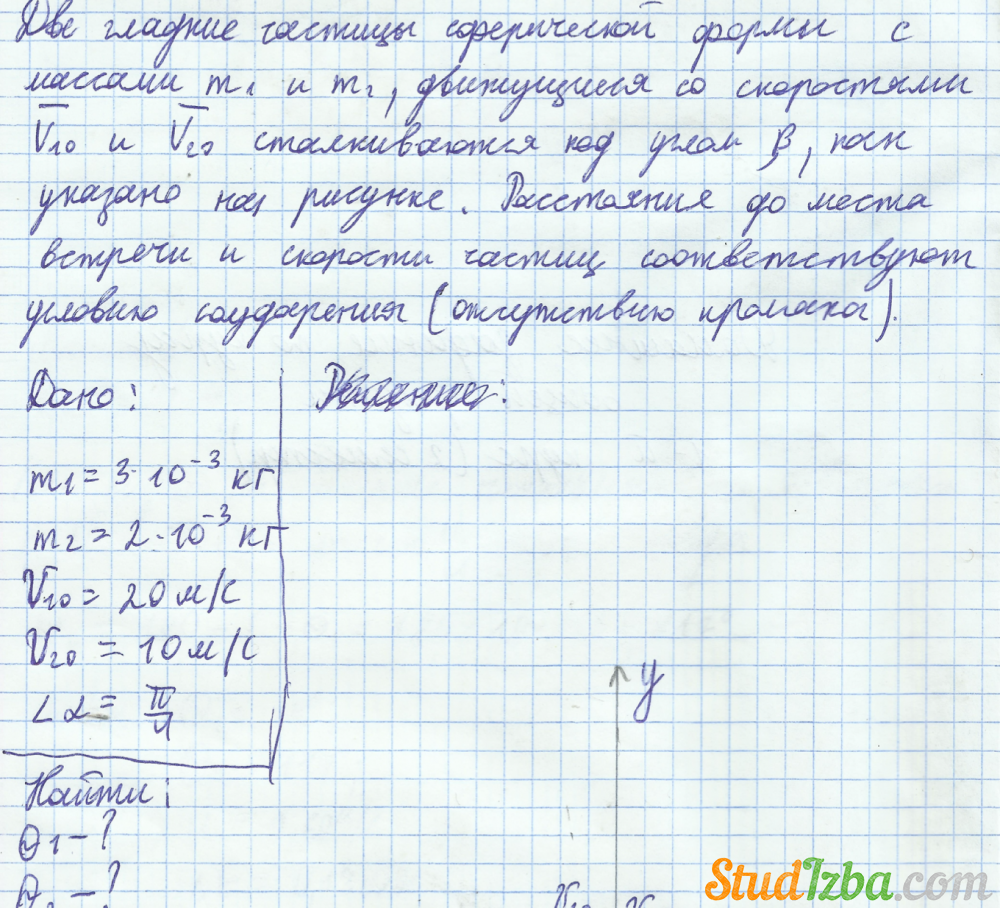 Две гладкие частицы сферической формы с
массами m₁ и m₂, движущиеся со скоростями
V̅₁₀ и V̅₂₀ сталкиваются под углом β, как
указано на рисунке. Расстояния до места
встречи и скорости частиц соответствуют
условию соударения (отсутствию промаха).
Дано:
Решение:
m₁ = 3·10⁻³ кг
m₂ = 2·10⁻³ кг
V₁₀ = 20 м/с
V₂₀ = 10 м/с
y
∠α = π/4
Найти:
Θ₁ - ?
StudIzba.com